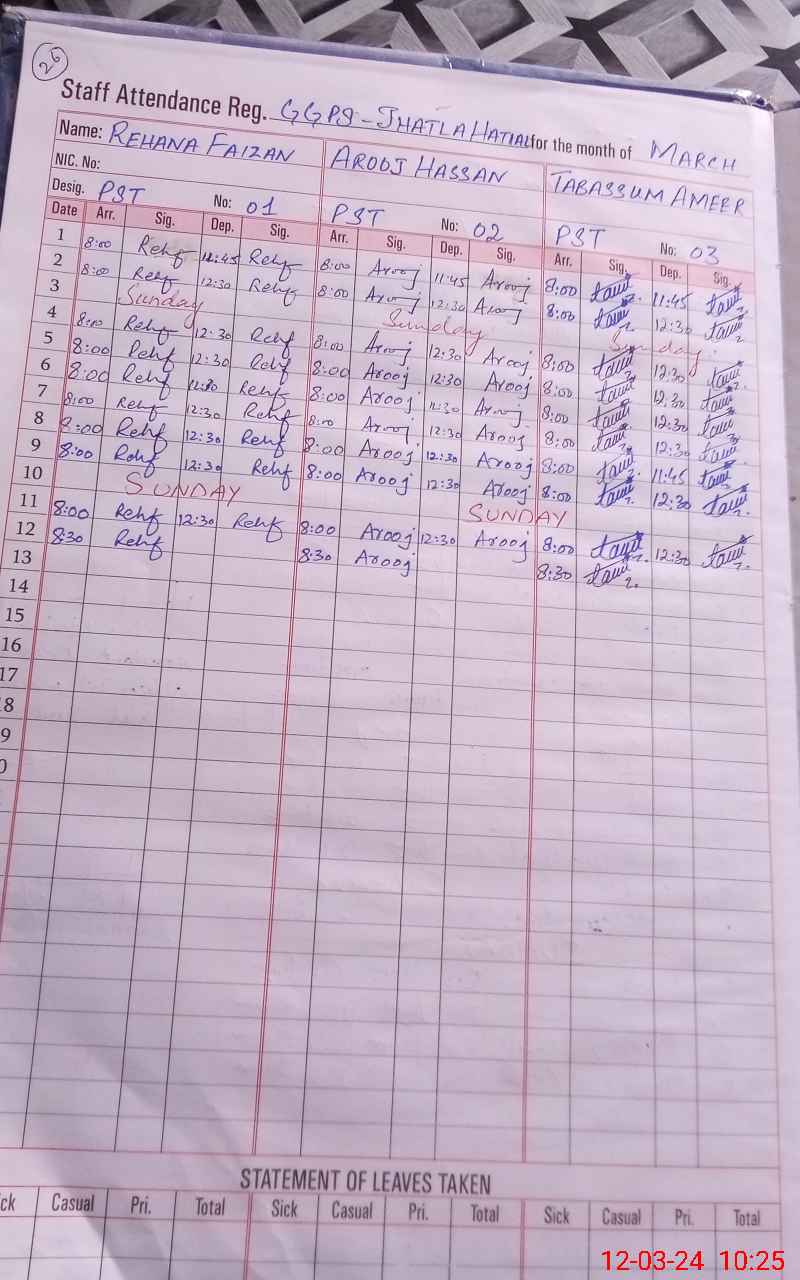 26
Staff Attendance Reg. GGPS - JHATLA HATIAL for the month of MARCH
Name: REHANA FAIZAN AROOJ HASSAN TABASSUM AMEER
NIC. No:
Desig. PST No: 01 PST No: 02 PST No: 03
Date Arr. Sig. Dep. Sig. Arr. Sig. Dep. Sig. Arr. Sig. Dep. Sig.
1 8:00 Rehf 11:45 Rehf 8:00 Arooj 11:45 Arooj 8:00 11:45
2 8:00 Rehf 12:30 Rehf 8:00 Arooj 12:30 Arooj 8:00 12:30
3 Sunday Sunday Sunday
4 8:00 Rehf 12:30 Rehf 8:00 Arooj 12:30 Arooj 8:00 12:30
5 8:00 Rehf 12:30 Rehf 8:00 Arooj 12:30 Arooj 8:00 12:30
6 8:00 Rehf Rehf 8:00 Arooj Arooj 8:00 12:30
7 8:00 Rehf 12:30 Rehf 8:00 Arooj 12:30 Arooj 8:00 12:30
8 8:00 Rehf 12:30 Rehf 8:00 Arooj 12:30 Arooj 8:00 11:45
9 8:00 Rehf 12:30 Rehf 8:00 Arooj 12:30 Arooj 8:00 12:30
10 SUNDAY SUNDAY
11 8:00 Rehf 12:30 Rehf 8:00 Arooj 12:30 Arooj 8:00 12:30
12 8:30 Rehf 8:30 Arooj 8:30
13
14
15
16
17
8
9
0
STATEMENT OF LEAVES TAKEN
ck Casual Pri. Total Sick Casual Pri. Total Sick Casual Pri. Total
12-03-24 10:25